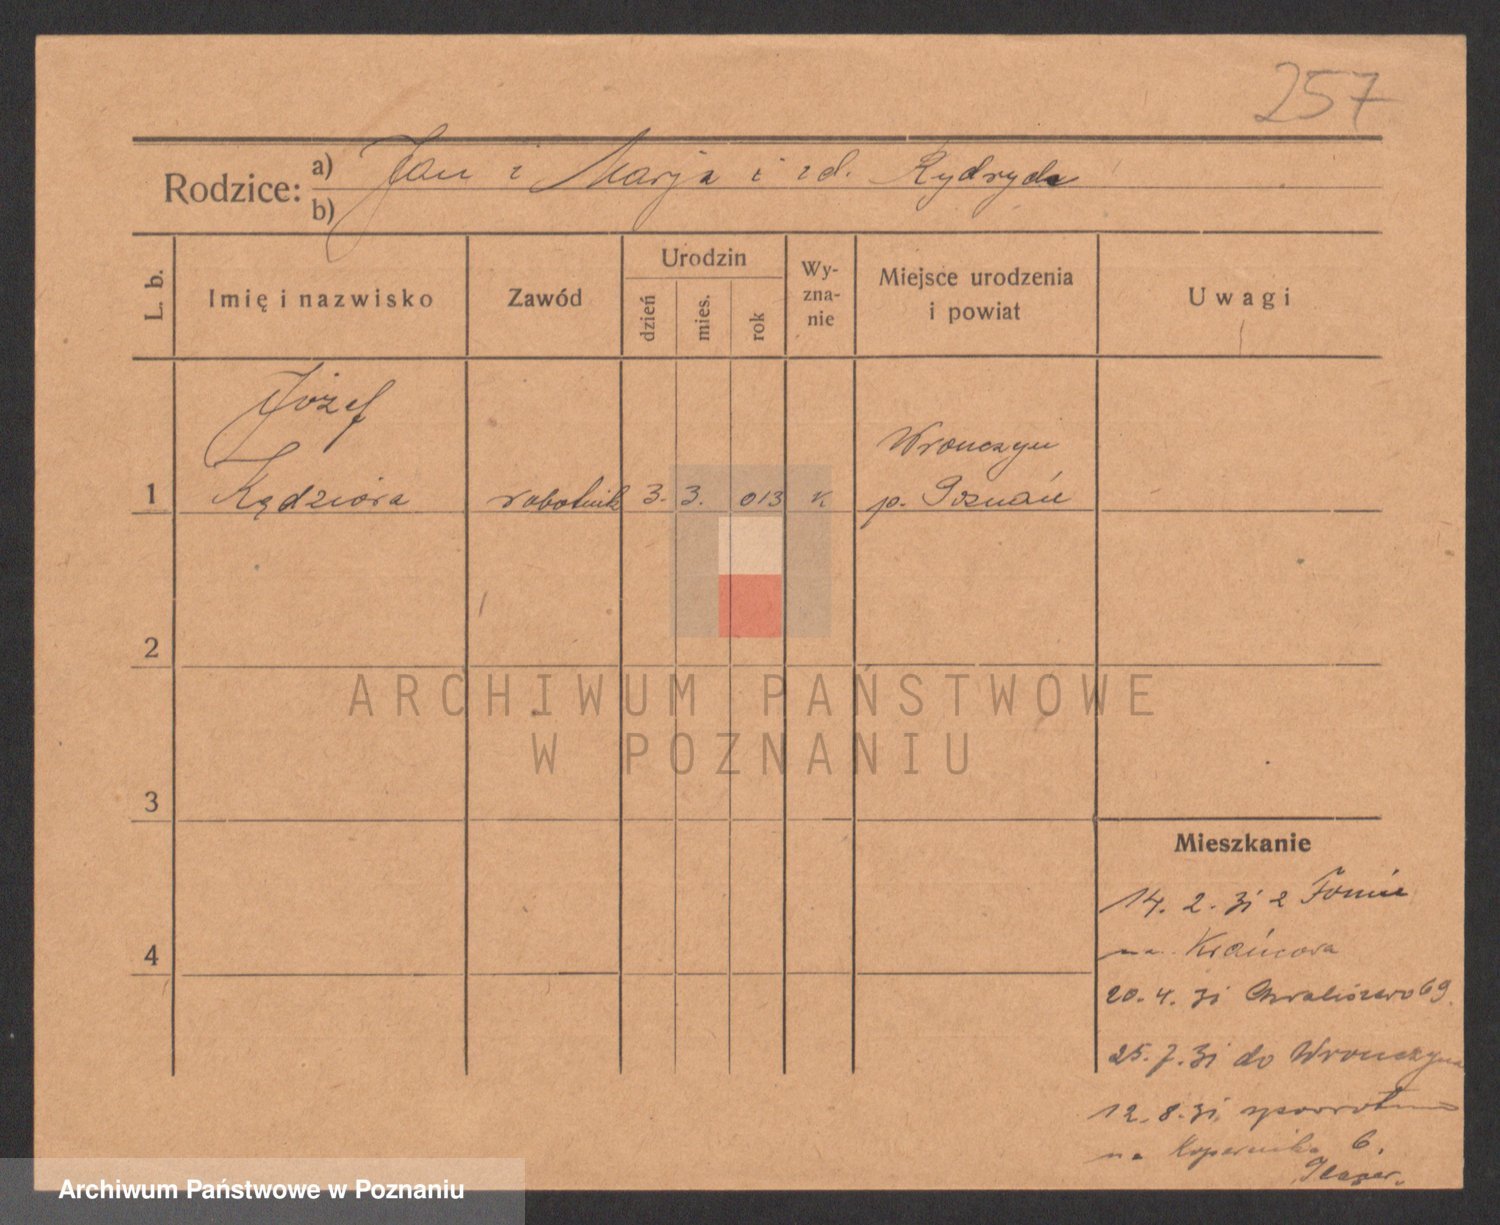 257
Rodzice: a) Jan i Marja i zd.
b)
L. b.
Imię i nazwisko
Zawód
Urodzin
dzień
mies.
rok
Wy-
zna-
nie
Miejsce urodzenia
i powiat
Uwagi
Józef
1 Kądziora robotnik 3. 3. 013 k
Wronczyn
p. Poznań
2
ARCHIWUM PAŃSTWOWE
W POZNANIU
3
Mieszkanie
14. 2. 31 z
4
na Krańcowa
20. 4. 31 Chwaliszewo 69.
25. 7. 31 do Wronczyna
12. 8. 31 zpowrotem
na Kopernika 6.
Archiwum Państwowe w Poznaniu